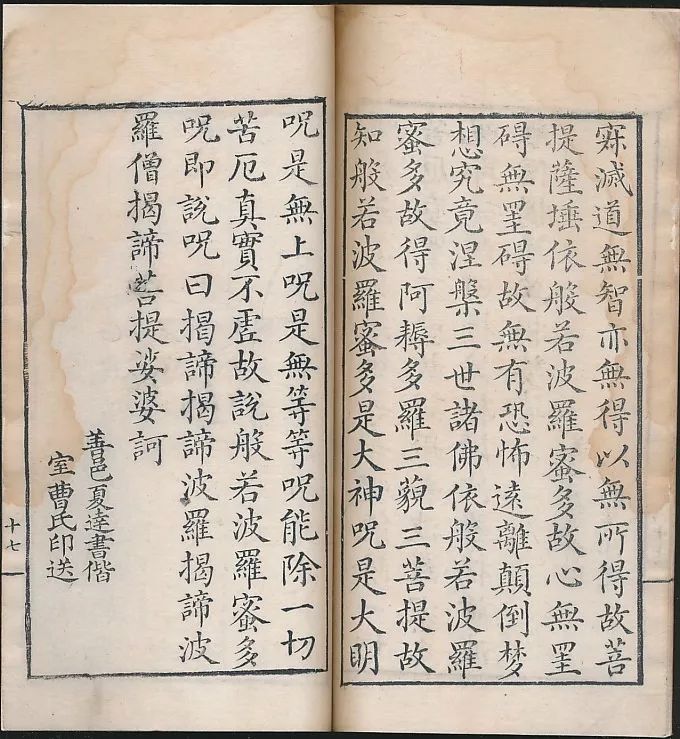 寐滅道無智亦無得以無所得故菩
提薩埵依般若波羅蜜多故心無罣
碍無罣碍故無有恐怖遠離顛倒梦
想究竟涅槃三世諸佛依般若波羅
蜜多故得阿耨多羅三藐三菩提故
知般若波羅蜜多是大神呪是大明
呪是無上呪是無等等呪能除一切
苦厄真實不虛故說般若波羅蜜多
呪即說呪曰揭諦揭諦波羅揭諦波
羅僧揭諦菩提娑婆訶
善邑夏逵書偕
室曹氏印送
十七